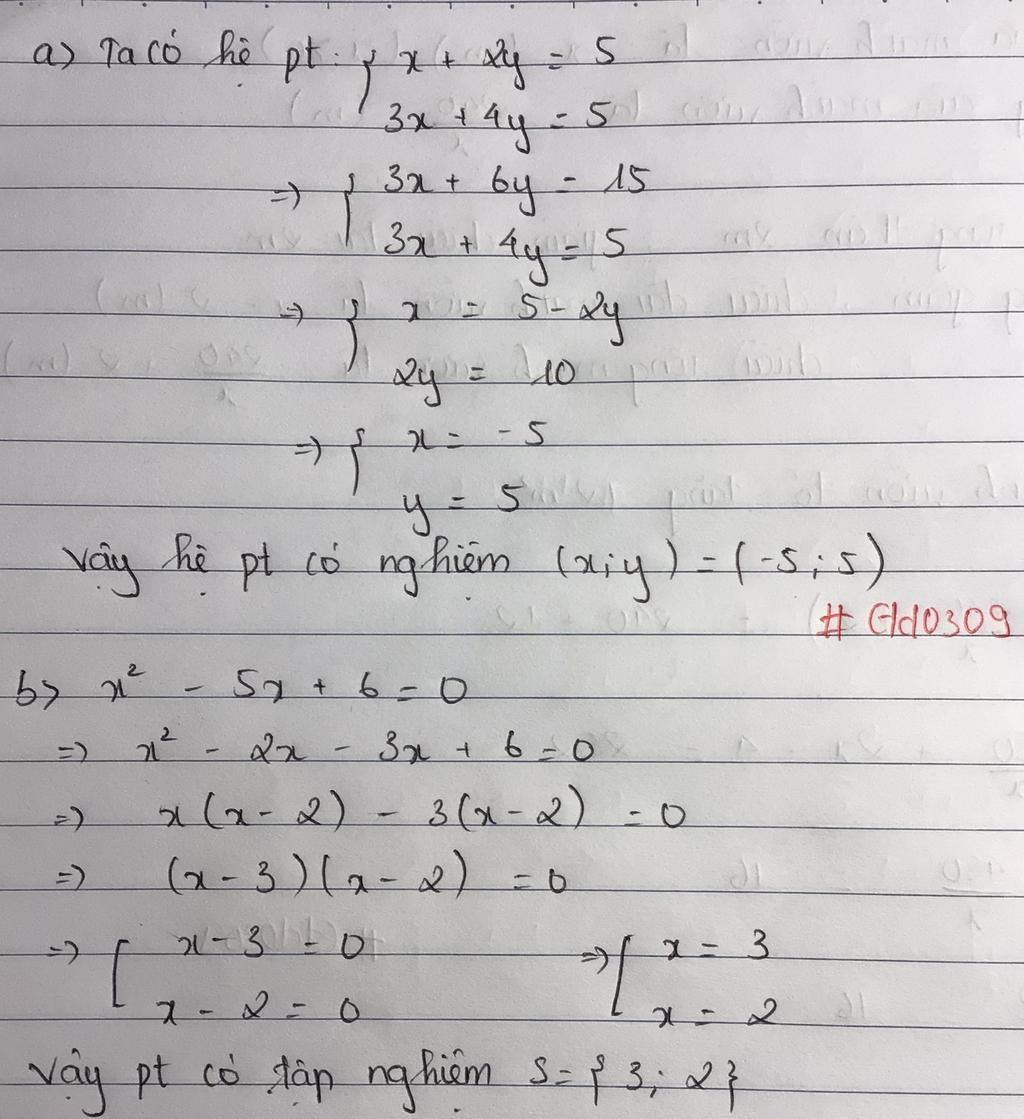 a) Ta có hệ pt: { x + 2y = 5
3x + 4y = 5
=> { 3x + 6y = 15
3x + 4y = 5
=> { x = 5 - 2y
2y = 10
=> { x = -5
y = 5
Vậy hệ pt có nghiệm (x;y) = (-5; 5)
b) x² - 5x + 6 = 0
=> x² - 2x - 3x + 6 = 0
=> x(x - 2) - 3(x - 2) = 0
=> (x - 3)(x - 2) = 0
=> [ x - 3 = 0 => [ x = 3
x - 2 = 0 x = 2
Vậy pt có tập nghiệm S = { 3; 2 }